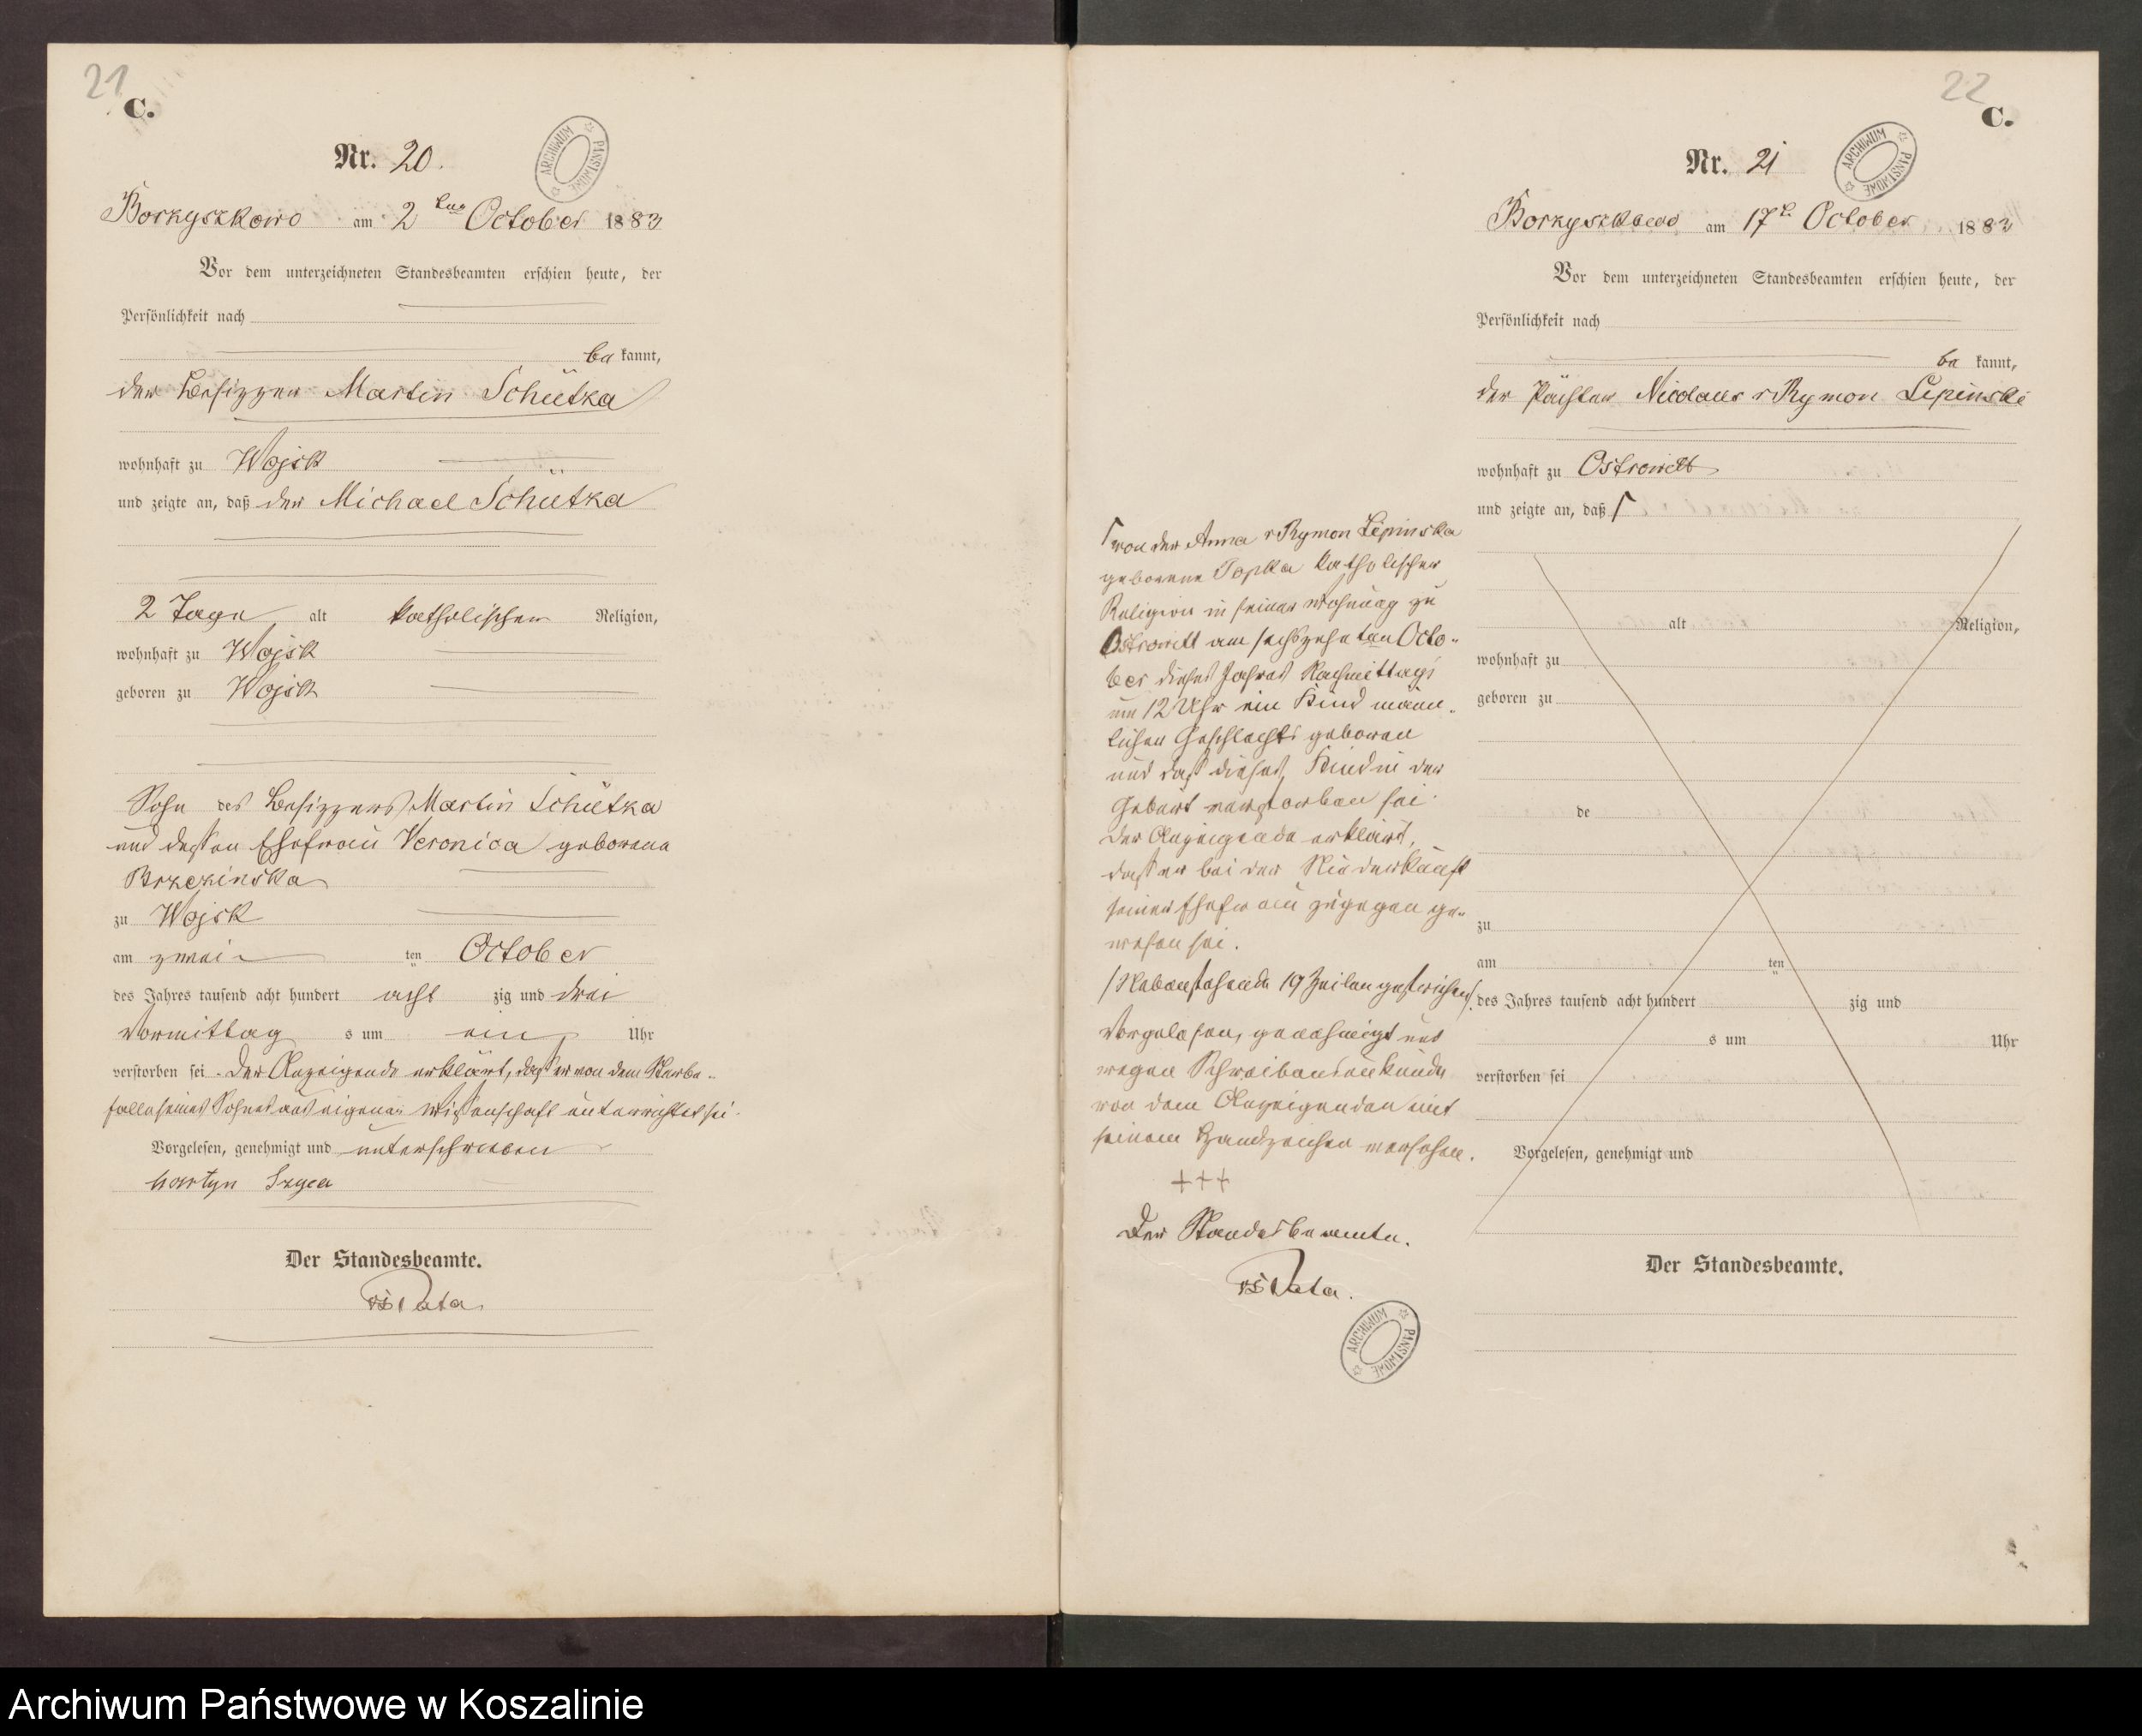 21
C.
Nr. 20.
ARCHIWUM PAŃSTWOWE
Borzyszkowo am 2 ten October 1883
Vor dem unterzeichneten Standesbeamten erschien heute, der
Persönlichkeit nach
be kannt,
der Besitzer Martin Schütza
wohnhaft zu Wojsk
und zeigte an, daß der Michael Schütza
2 Tage alt katholischer Religion,
wohnhaft zu Wojsk
geboren zu Wojsk
Sohn des Besitzers Martin Schütza
und dessen Ehefrau Veronica geborene
Brzezinska
zu Wojsk
am zwei ten October
des Jahres tausend acht hundert acht zig und drei
Vormittag s um ein Uhr
verstorben sei. Der Anzeigende erklärt, daß er von dem Sterbe-
falle seines Sohnes aus eigener Wissenschaft unterrichtet sei.
Vorgelesen, genehmigt und unterschrieben
Der Standesbeamte.
22
C.
Nr. 21
ARCHIWUM PAŃSTWOWE
Borzyszkowo am 17t October 1883
Vor dem unterzeichneten Standesbeamten erschien heute, der
Persönlichkeit nach
be kannt,
der Pächter Nicolaus v Rymon Lipinski
wohnhaft zu Ostrowitt
und zeigte an, daß ſ
alt Religion,
wohnhaft zu
geboren zu
de
zu
am ten
des Jahres tausend acht hundert zig und
s um Uhr
verstorben sei
Vorgelesen, genehmigt und
Der Standesbeamte.
ſ von der Anna v Rymon Lipinska
geborene Topka katholischer
Religion in seiner Wohnung zu
Ostrowitt am sechszehnten Octo-
ber dieses Jahres Nachmittags
um 12 Uhr ein Kind männ-
lichen Geschlechts geboren
und daß dieses Kind in der
Geburt verstorben sei.
Der Anzeigende erklärt,
daß er bei der Niederkunft
seiner Ehefrau zugegen ge-
wesen sei.
/Nebenstehende 19 Zeilen gestrichen/.
Vorgelesen, genehmigt und
wegen Schreibensunkunde
von dem Anzeigenden mit
seinem Handzeichen versehen.
+++
Der Standesbeamte.
ARCHIWUM PAŃSTWOWE
Archiwum Państwowe w Koszalinie